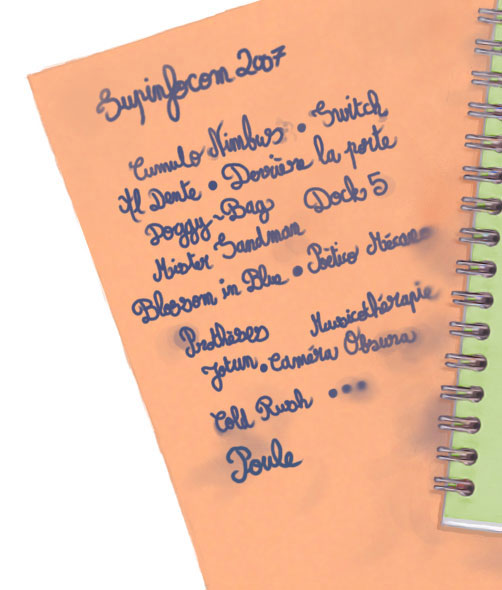 Supinfocom 2007
Cumulo Nimbus • Switch
Al Dente • Derrière la porte
Doggy-Bag Dock 5
Mister Sandman
Blossom in Blue • Poético Mécano
Prothèses Musicothérapie
Jotun • Caméra Obsura
Cold Rush •••
Poule